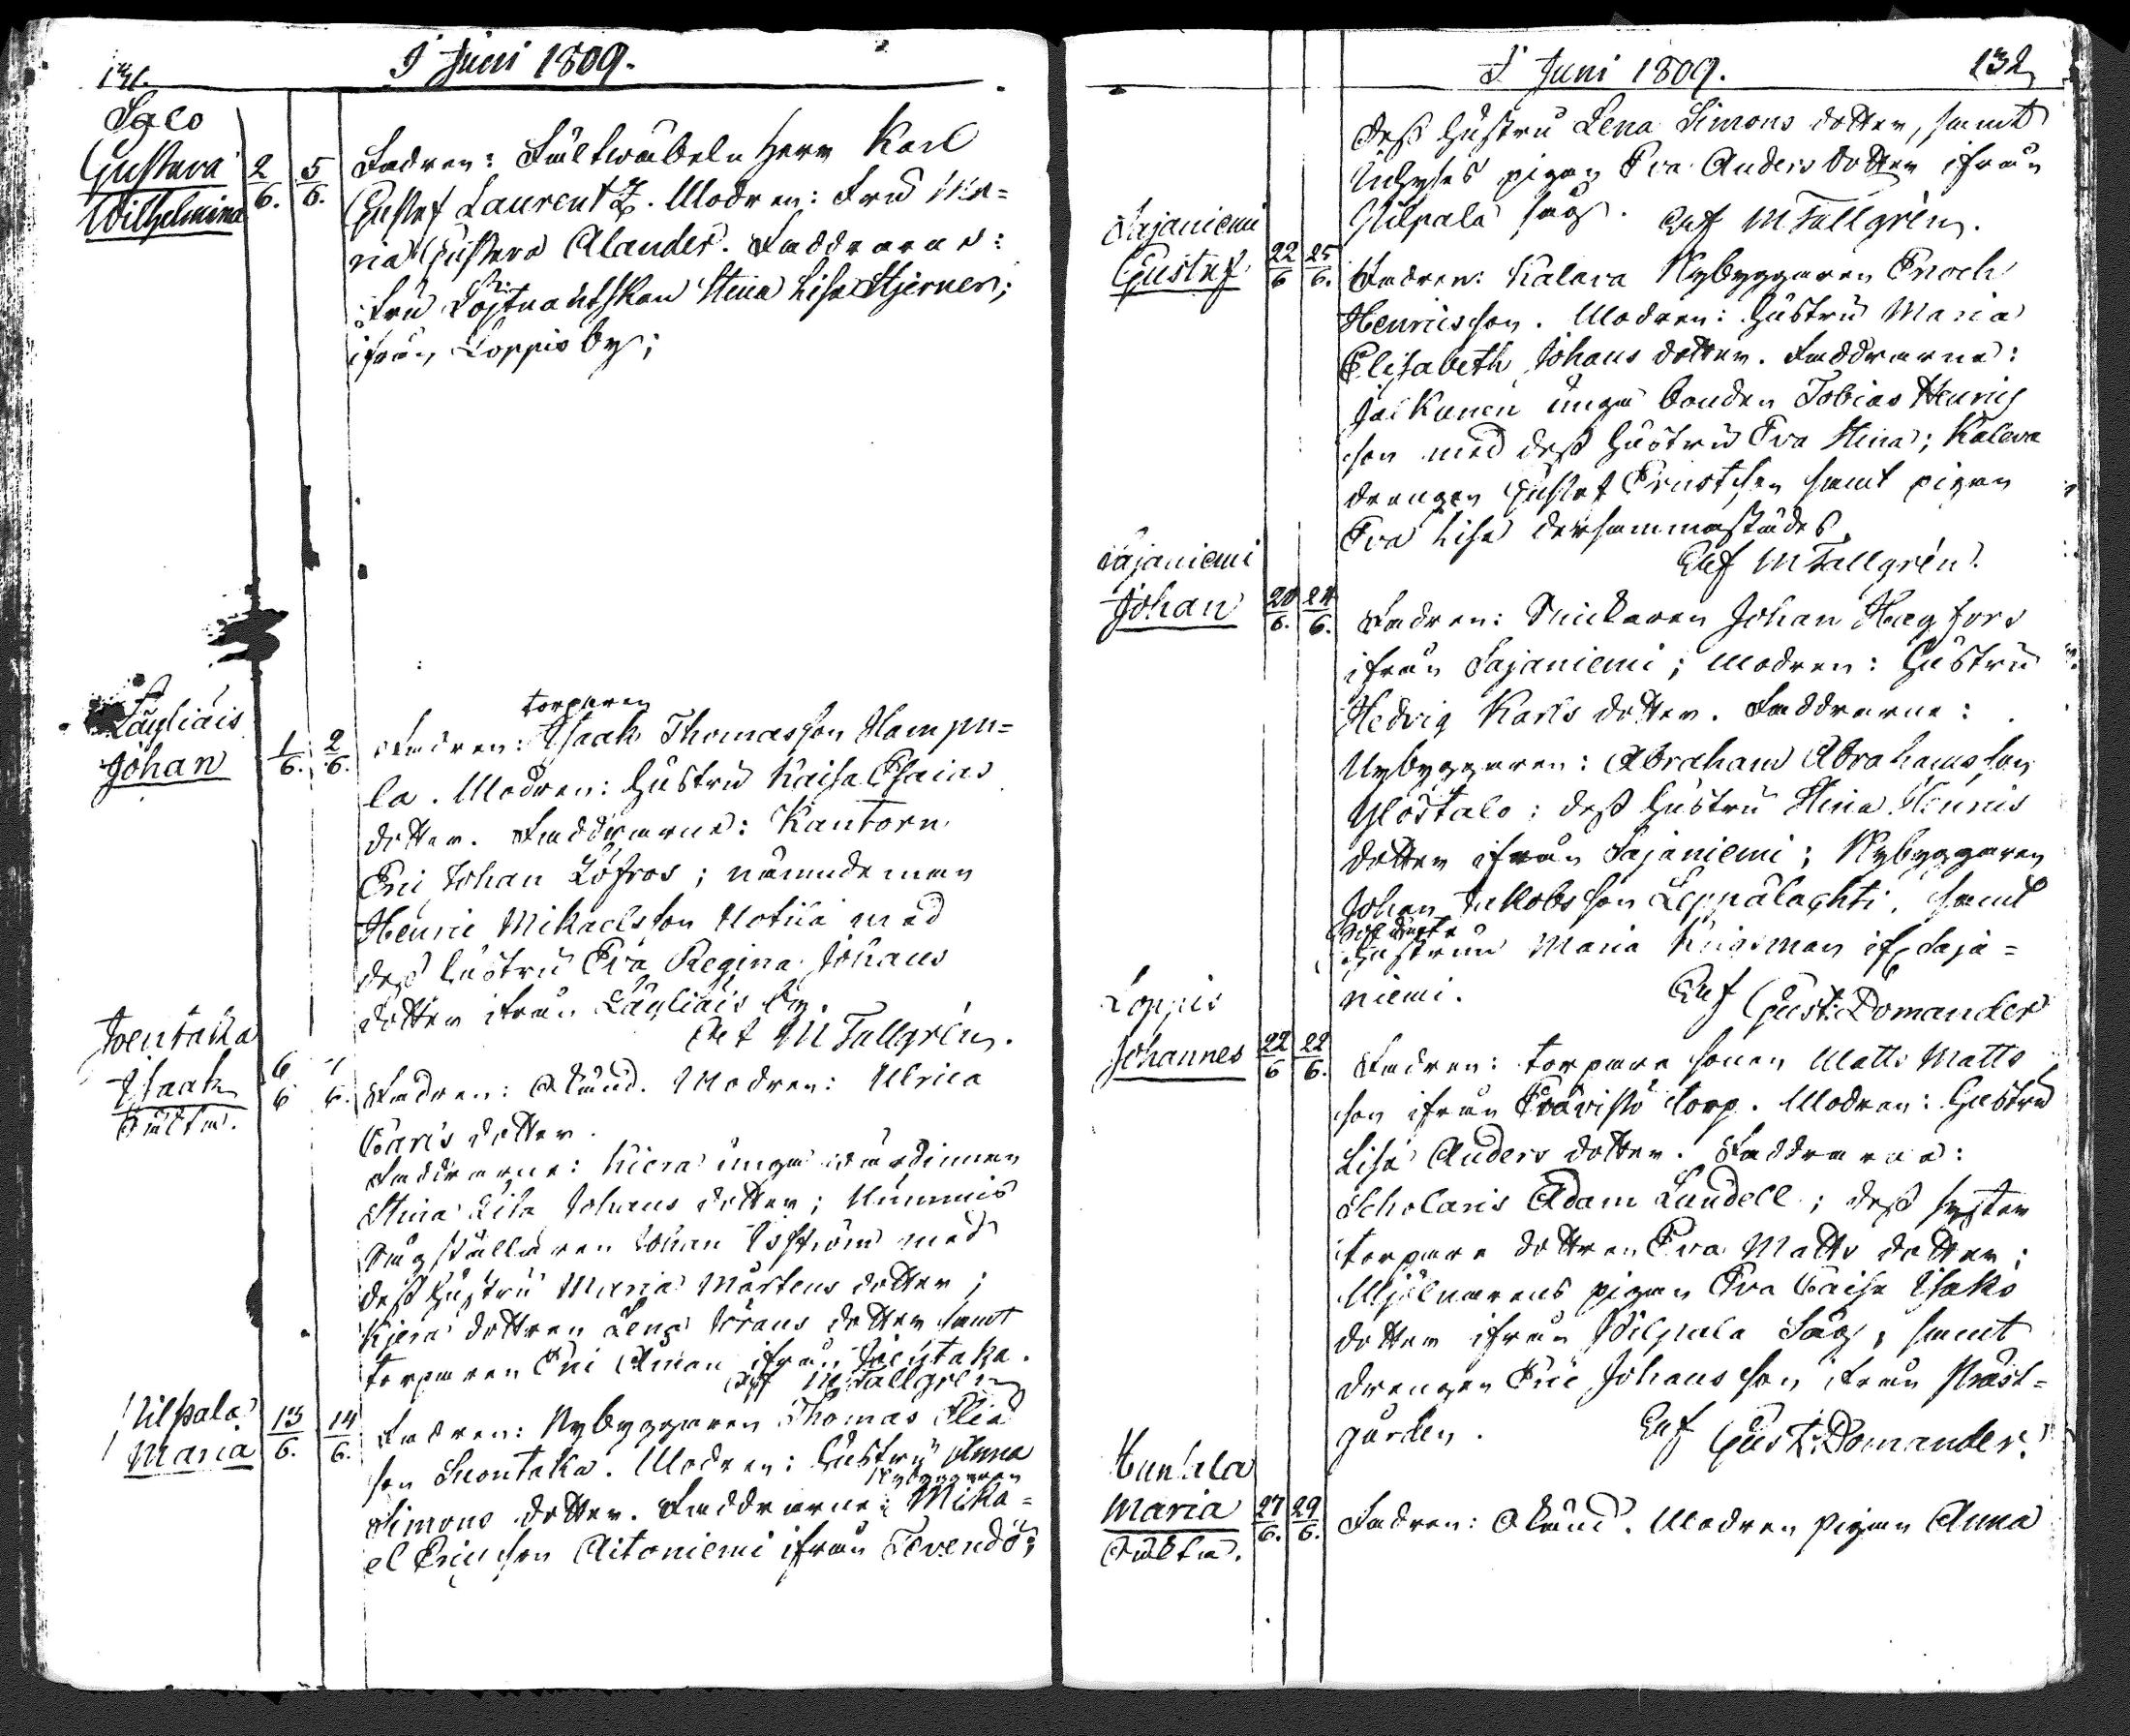 131.
I Juni 1809.
Sgeo
Gustava
Wilhelmina
2/6. 5/6.
Fadren: Fältwäbeln Herr Karl
Gustaf Laurentz. Modren: Fru Ma=
ria Gustava Alander. Faddrarne:
Fru Löjtnantskan Stina Lisa Stjerner;
ifrån Loppis by;
Läyliäis
Johan
1/6. 2/6.
torparen
Fadren: Isaak Thomasson Hampu=
la. Modren: Hustru Kaisa Esaias
dotter. Faddrarne: Kantorn
Eric Johan Löfros; nämndeman
Henric Mikaelsson Notiia med
dess hustru Eva Regina Johans
dotter ifrån Läyliäis by.
Att M Tallgrén.
Joentaka
Isaak
6/6
Fadren: Okänd. Modren: Ulrica
Carls dotter.
Faddrarne: Kiera unga wärdinnan
Stina Lisa Johans dotter;
Sågställaren Johan med
dess Hustru Maria Mårtens dotter;
Kjera dottren Lena Jörans dotter samt
torparen Eric Åman ifrån Joentaka.
M Tallgrén
Pilpala
Maria
13/6. 14/6.
Fadren: Nybyggaren Thomas Elia
son Suontaka. Modren: Hustru Anna
Nybyggaren
Simons dotter. Faddrarne: Mika=
el Ericsson Aitoniemi ifrån Tevendö;
I Juni 1809.
132
dess Hustru Lena Simons dotter, samt
pigan Eva Anders dotter ifrån
Pilpala såg. Att M Tallgrén.
Sajaniemi
Gustaf
22/6 25/6.
Fadren: Kalava Nybyggaren Enoch
Henricsson. Modren: Hustru Maria
Elisabeth Johans dotter. Faddrarne:
Jalkanen unga bonden Tobias Henrics
son med dess Hustru Eva Stina; Kaleva
drengen Gustaf Ernstsson samt pigan
Eva Lisa dersammastädes.
Att M Tallgrén.
Sajaniemi
Johan
20/6. 24/6.
Fadren: Snickaren Johan Hagfors
ifrån Sajaniemi; Modren: Hustru
Hedvig Karls dotter. Faddrarne:
Nybyggaren: Abraham Abrahamsson
Ylöstalo: dess Hustru Stina Henrics
dotter ifrån Sajaniemi; Nybyggaren
Johan Jakobsson Leppälachti, samt
Soldats
Hustrun Maria Krigsman if. Saja=
niemi.
Att Gust: Domander
Loppis
Johannes
22/6 22/6.
Fadren: torpare sonen Matts Matts
son ifrån torp. Modren: Hustru
Lisa Anders dotter. Faddrarne:
Scholaris Adam Lundell; dess syster
torpare dottren Eva Matts dotter;
Mjölnarens pigan Eva Caisa Isaks
dotter ifrån Pilpala Såg, samt
drengen Eric Johans son ifrån Präst=
gården.
Att Gust: Domander.
Huntala
Maria
27/6. 29/6.
Fadren: Okänd. Modren pigan Anna